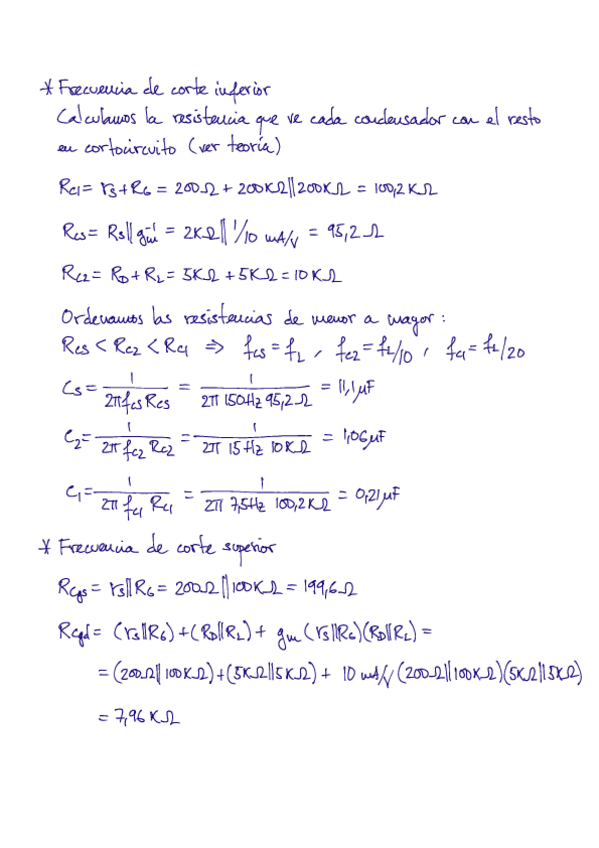 * Frecuencia de corte inferior
Calculamos la resistencia que ve cada condensador con el resto
en cortocircuito (ver teoría)
RC1 = rs + RG = 200Ω + 200KΩ||200KΩ = 100,2 KΩ
RCS = RS||gm⁻¹ = 2KΩ|| 1/10 mA/V = 95,2 Ω
RC2 = RD + RL = 5KΩ + 5KΩ = 10 KΩ
Ordenamos las resistencias de menor a mayor :
RCS < RC2 < RC1 ⇒ fCS = fL , fC2 = fL/10 , fC1 = fL/20
CS = 1/(2π fCS RCS) = 1/(2π 150Hz 95,2Ω) = 11,1μF
C2 = 1/(2π fC2 RC2) = 1/(2π 15Hz 10KΩ) = 1,06μF
C1 = 1/(2π fC1 RC1) = 1/(2π 7,5Hz 100,2KΩ) = 0,21μF
* Frecuencia de corte superior
Rcgs = rs||RG = 200Ω||100KΩ = 199,6Ω
Rcgd = (rs||RG) + (RD||RL) + gm (rs||RG)(RD||RL) =
= (200Ω||100KΩ) + (5KΩ||5KΩ) + 10 mA/V (200Ω||100KΩ)(5KΩ||5KΩ)
= 7,96 KΩ